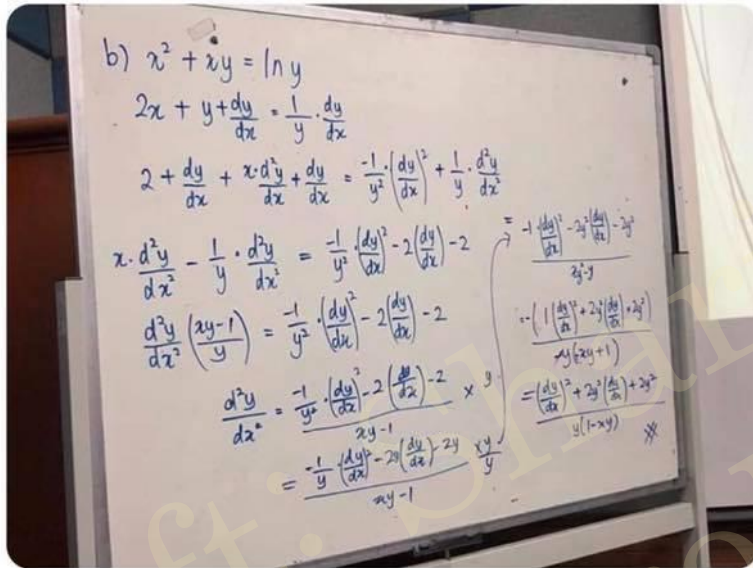 b) x² + xy = ln y
2x + y + dy/dx = 1/y · dy/dx
2 + dy/dx + x·d²y/dx + dy/dx = -1/y² · (dy/dx)² + 1/y · d²y/dx²
x · d²y/dx² - 1/y · d²y/dx² = -1/y² · (dy/dx)² - 2(dy/dx) - 2
d²y/dx² ((xy-1)/y) = -1/y² · (dy/dx)² - 2(dy/dx) - 2
d²y/dx² = (-1/y² · (dy/dx)² - 2(dy/dx) - 2)/(xy-1) × y
= (-1/y · (dy/dx)² - 2y(dy/dx) - 2y)/(xy-1) ×y/y
= (-1·(dy/dx)² - 2y²(dy/dx) - 2y²)/(xy²-y)
= -(1(dy/dx)² + 2y²(dy/dx) + 2y²)/(-y(-xy+1))
= ((dy/dx)² + 2y²(dy/dx) + 2y²)/(y(1-xy))
ft: Shar